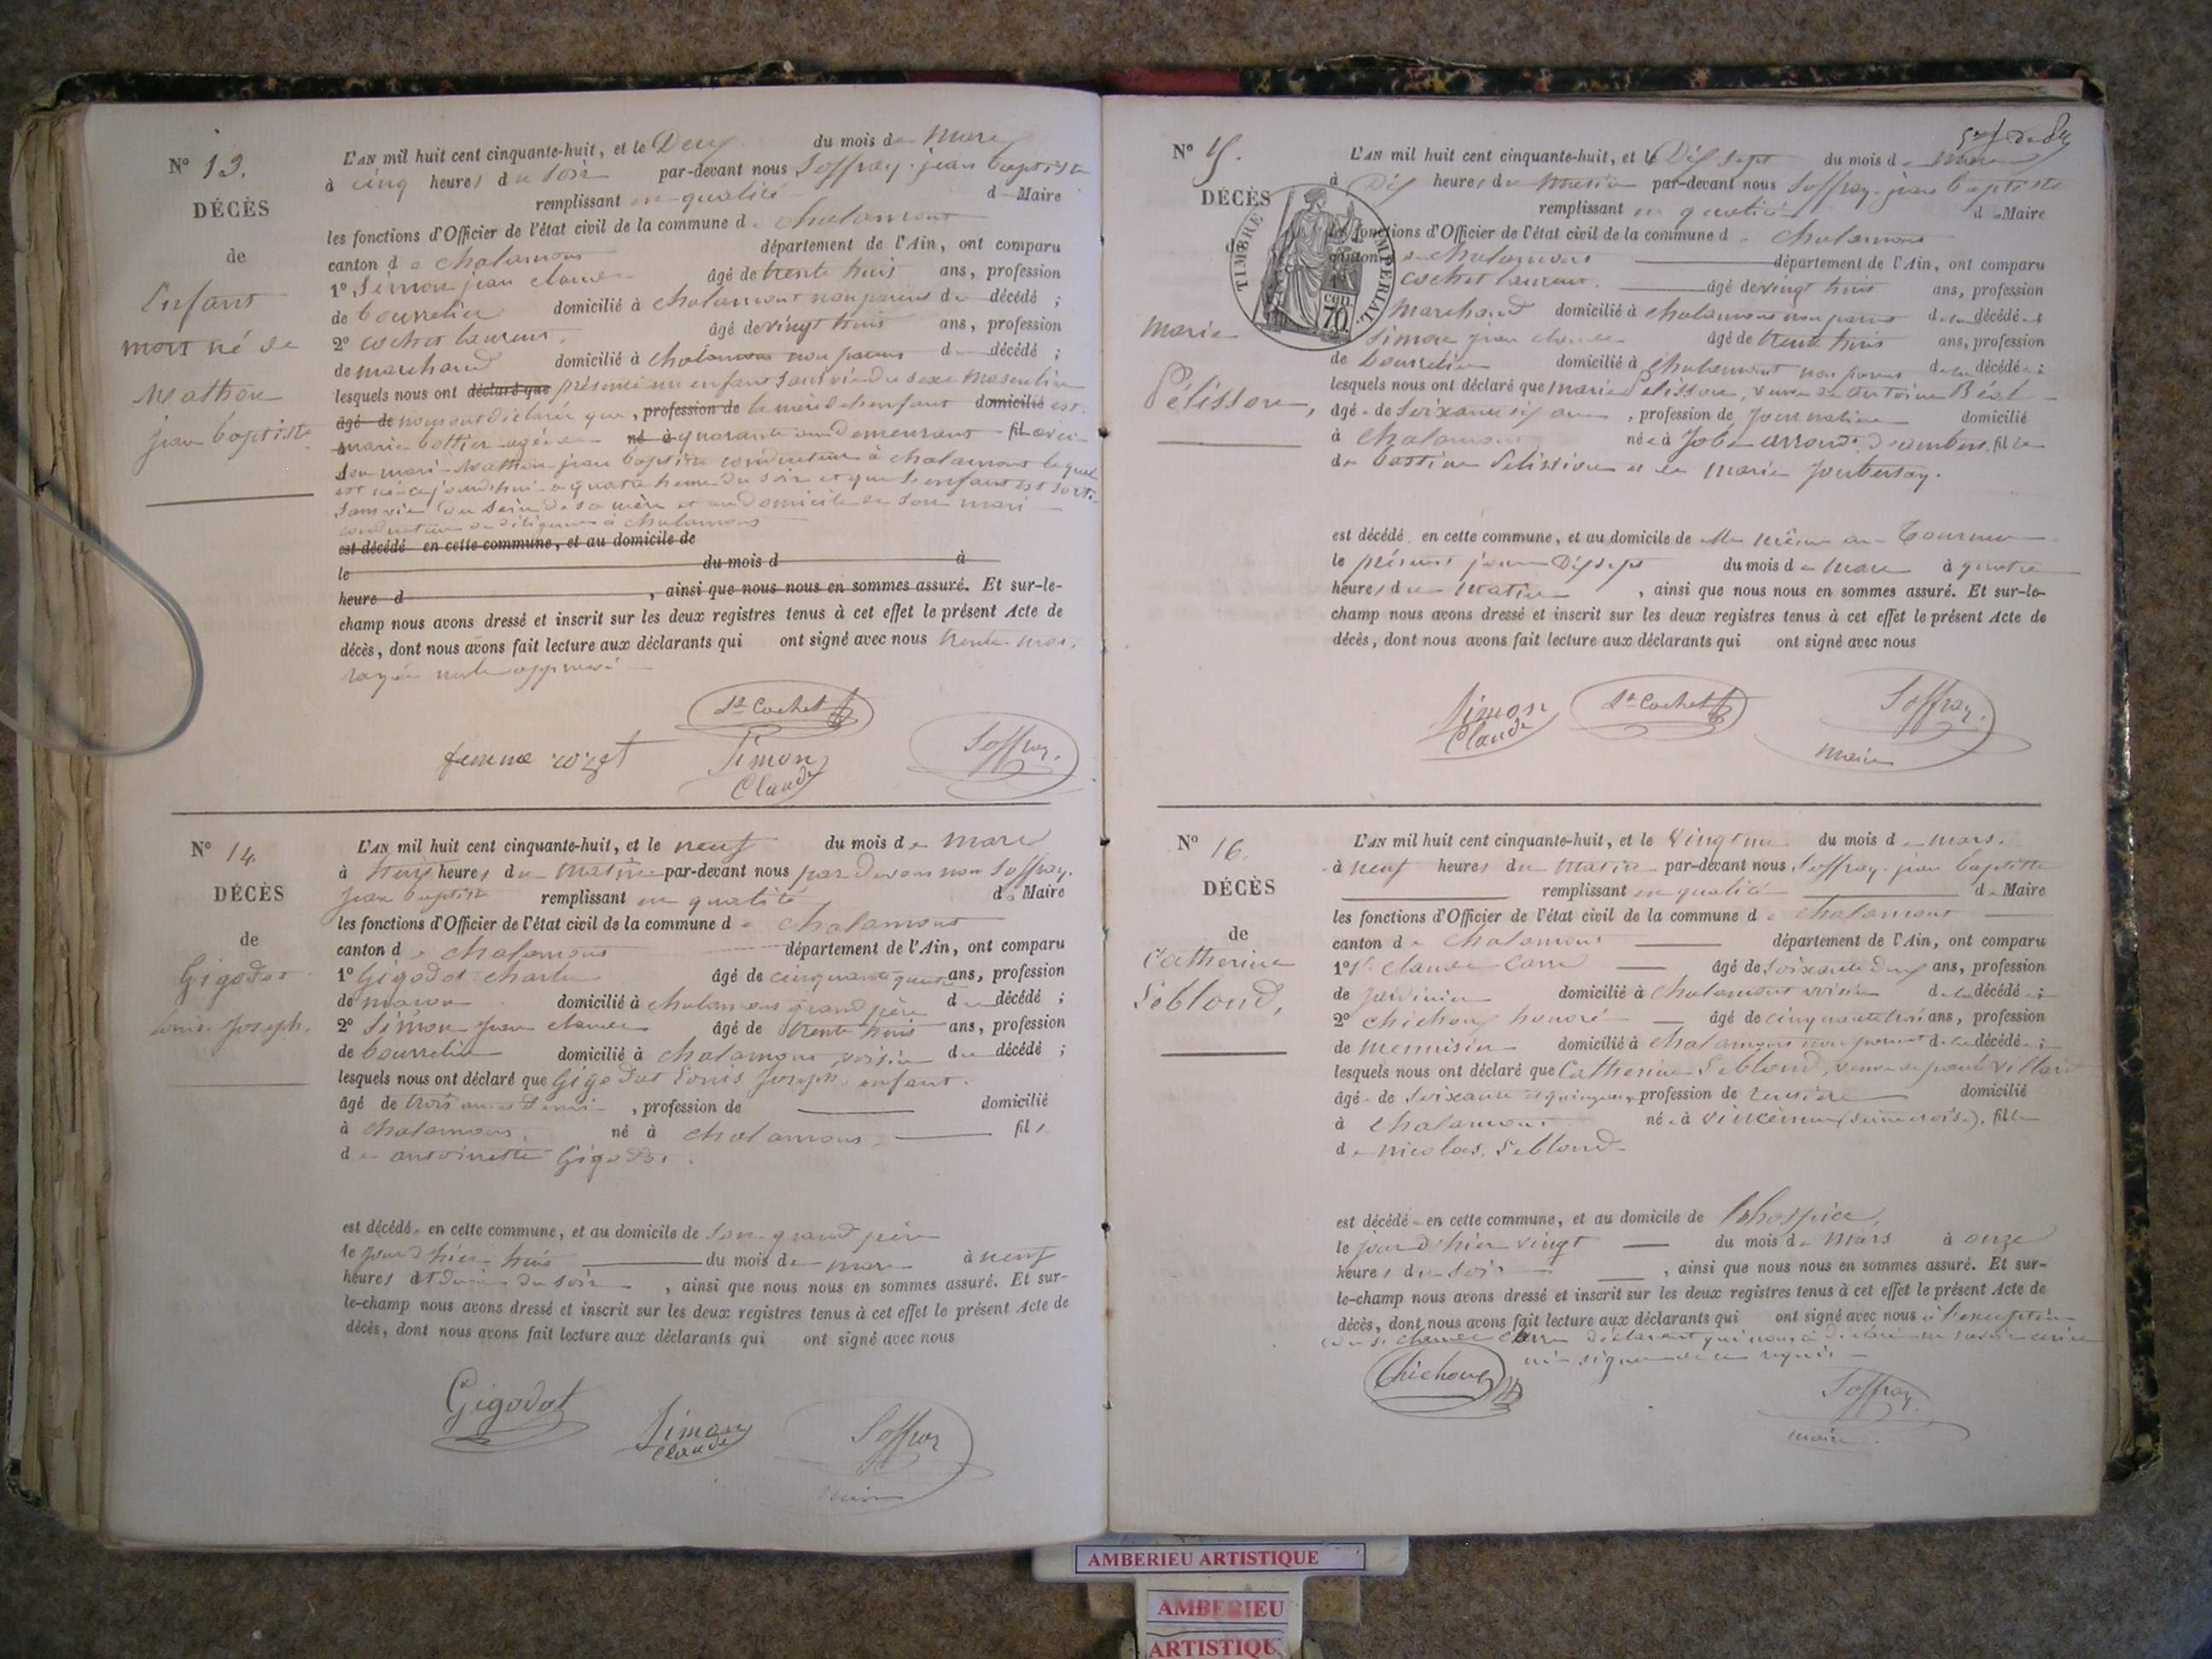 N° 13.
DÉCÈS
de
Enfant
mort né de
Mathon
jean baptiste
L'AN mil huit cent cinquante-huit, et le Deux du mois de Mars
à cinq heures du soir par-devant nous Soffray jean baptiste
remplissant en qualité de Maire
les fonctions d'Officier de l'état civil de la commune de chalamont
canton de chalamont département de l'Ain, ont comparu
1° Simon jean claude âgé de trente huit ans, profession
de bourrelier domicilié à chalamont non parent du décédé ;
2° cochet laurent âgé de vingt huit ans, profession
de marchand domicilié à chalamont non parent du décédé ;
lesquels nous ont déclaré que présenté un enfant sans vie du sexe masculin
âgé de nous ont déclaré que, profession de la mère de l'enfant domicilié est
marie bottier agée de né à quarante ans demeurant fil avec
son mari Mathon jean baptiste conducteur à chalamont lequel
est né cejourd'hui à quatre heures du soir et que l'enfant est sorti
sans vie du sein de sa mère et au domicile de son mari
conducteur de diligence à chalamont
est décédé en cette commune, et au domicile de
le du mois d à
heure d , ainsi que nous nous en sommes assuré. Et sur-le-
champ nous avons dressé et inscrit sur les deux registres tenus à cet effet le présent Acte de
décès, dont nous avons fait lecture aux déclarants qui ont signé avec nous trente mots
rayés nuls approuvé
Lt Cochet
femme rozet Simon Claude Soffray
N° 14.
DÉCÈS
de
Gigodot
louis Joseph.
L'AN mil huit cent cinquante-huit, et le neuf du mois de mars
à heures du matin par-devant nous par devant nous Soffray
jean baptiste remplissant en qualité de Maire
les fonctions d'Officier de l'état civil de la commune de chalamont
canton de chalamont département de l'Ain, ont comparu
1° Gigodot charles âgé de cinquante quatre ans, profession
de maçon domicilié à chalamont grand père du décédé ;
2° Simon jean claude âgé de trente huit ans, profession
de bourrelier domicilié à chalamont voisin du décédé ;
lesquels nous ont déclaré que Gigodot Louis Joseph enfant.
âgé de trois ans et demi , profession de domicilié
à chalamont, né à chalamont, fils
de antoinette Gigodot.
est décédé en cette commune, et au domicile de son grand père
le jour d'hier huit du mois de mars à neuf
heures et demie du soir , ainsi que nous nous en sommes assuré. Et sur-
le-champ nous avons dressé et inscrit sur les deux registres tenus à cet effet le présent Acte de
décès, dont nous avons fait lecture aux déclarants qui ont signé avec nous
Gigodot
Simon Claude
Soffray
maire
N° 15.
DÉCÈS
TIMBRE IMPÉRIAL
cen
70
marie
Pélisson,
L'AN mil huit cent cinquante-huit, et le Dix sept du mois de mars
à Dix heures du matin par-devant nous Soffray jean baptiste
remplissant en qualité de Maire
les fonctions d'Officier de l'état civil de la commune de chalamont
canton de chalamont département de l'Ain, ont comparu
cochet laurent âgé de vingt huit ans, profession
marchand domicilié à chalamont non parent de la décédée
Simon jean claude âgé de trente huit ans, profession
de bourrelier domicilié à chalamont non parent de la décédée
lesquels nous ont déclaré que marie Pelisson, veuve de antoine Béal
âgée de soixante six ans , profession de journalière domicilié
à chalamont née à Job arrondt d'ambert, fille
de bastien Pelission et de marie Joubertay.
est décédé en cette commune, et au domicile de
le présent jour Dix sept du mois de mars à quatre
heures du matin , ainsi que nous nous en sommes assuré. Et sur-le-
champ nous avons dressé et inscrit sur les deux registres tenus à cet effet le présent Acte de
décès, dont nous avons fait lecture aux déclarants qui ont signé avec nous
Simon Claude
Lt Cochet
Soffray
maire
N° 16.
DÉCÈS
de
Catherine
Leblond,
L'AN mil huit cent cinquante-huit, et le Vingt un du mois de mars.
à neuf heures du matin par-devant nous Soffray jean baptiste
remplissant en qualité de Maire
les fonctions d'Officier de l'état civil de la commune de chalamont
canton de chalamont département de l'Ain, ont comparu
1° St claude Carre âgé de soixante deux ans, profession
de jardinier domicilié à chalamont voisin de la décédée ;
2° chichoux honoré âgé de cinquante trois ans, profession
de menuisier domicilié à chalamont non parent de la décédée ;
lesquels nous ont déclaré que Catherine Leblond, veuve de Villard
âgée de soixante et quinze ans, profession de rentière domicilié
à chalamont née à Vincennes (seine et oise), fille
de nicolas Leblond
est décédée en cette commune, et au domicile de l'hospice,
le jour d'hier vingt du mois de mars à onze
heures du soir , ainsi que nous nous en sommes assuré. Et sur-
le-champ nous avons dressé et inscrit sur les deux registres tenus à cet effet le présent Acte de
décès, dont nous avons fait lecture aux déclarants qui ont signé avec nous à l'exception
du sr claude Carre déclarant qui nous a déclaré ne savoir écrire
ni signer de ce requis
Chichoux
Soffray
maire
AMBERIEU ARTISTIQUE
AMBERIEU
ARTISTIQU